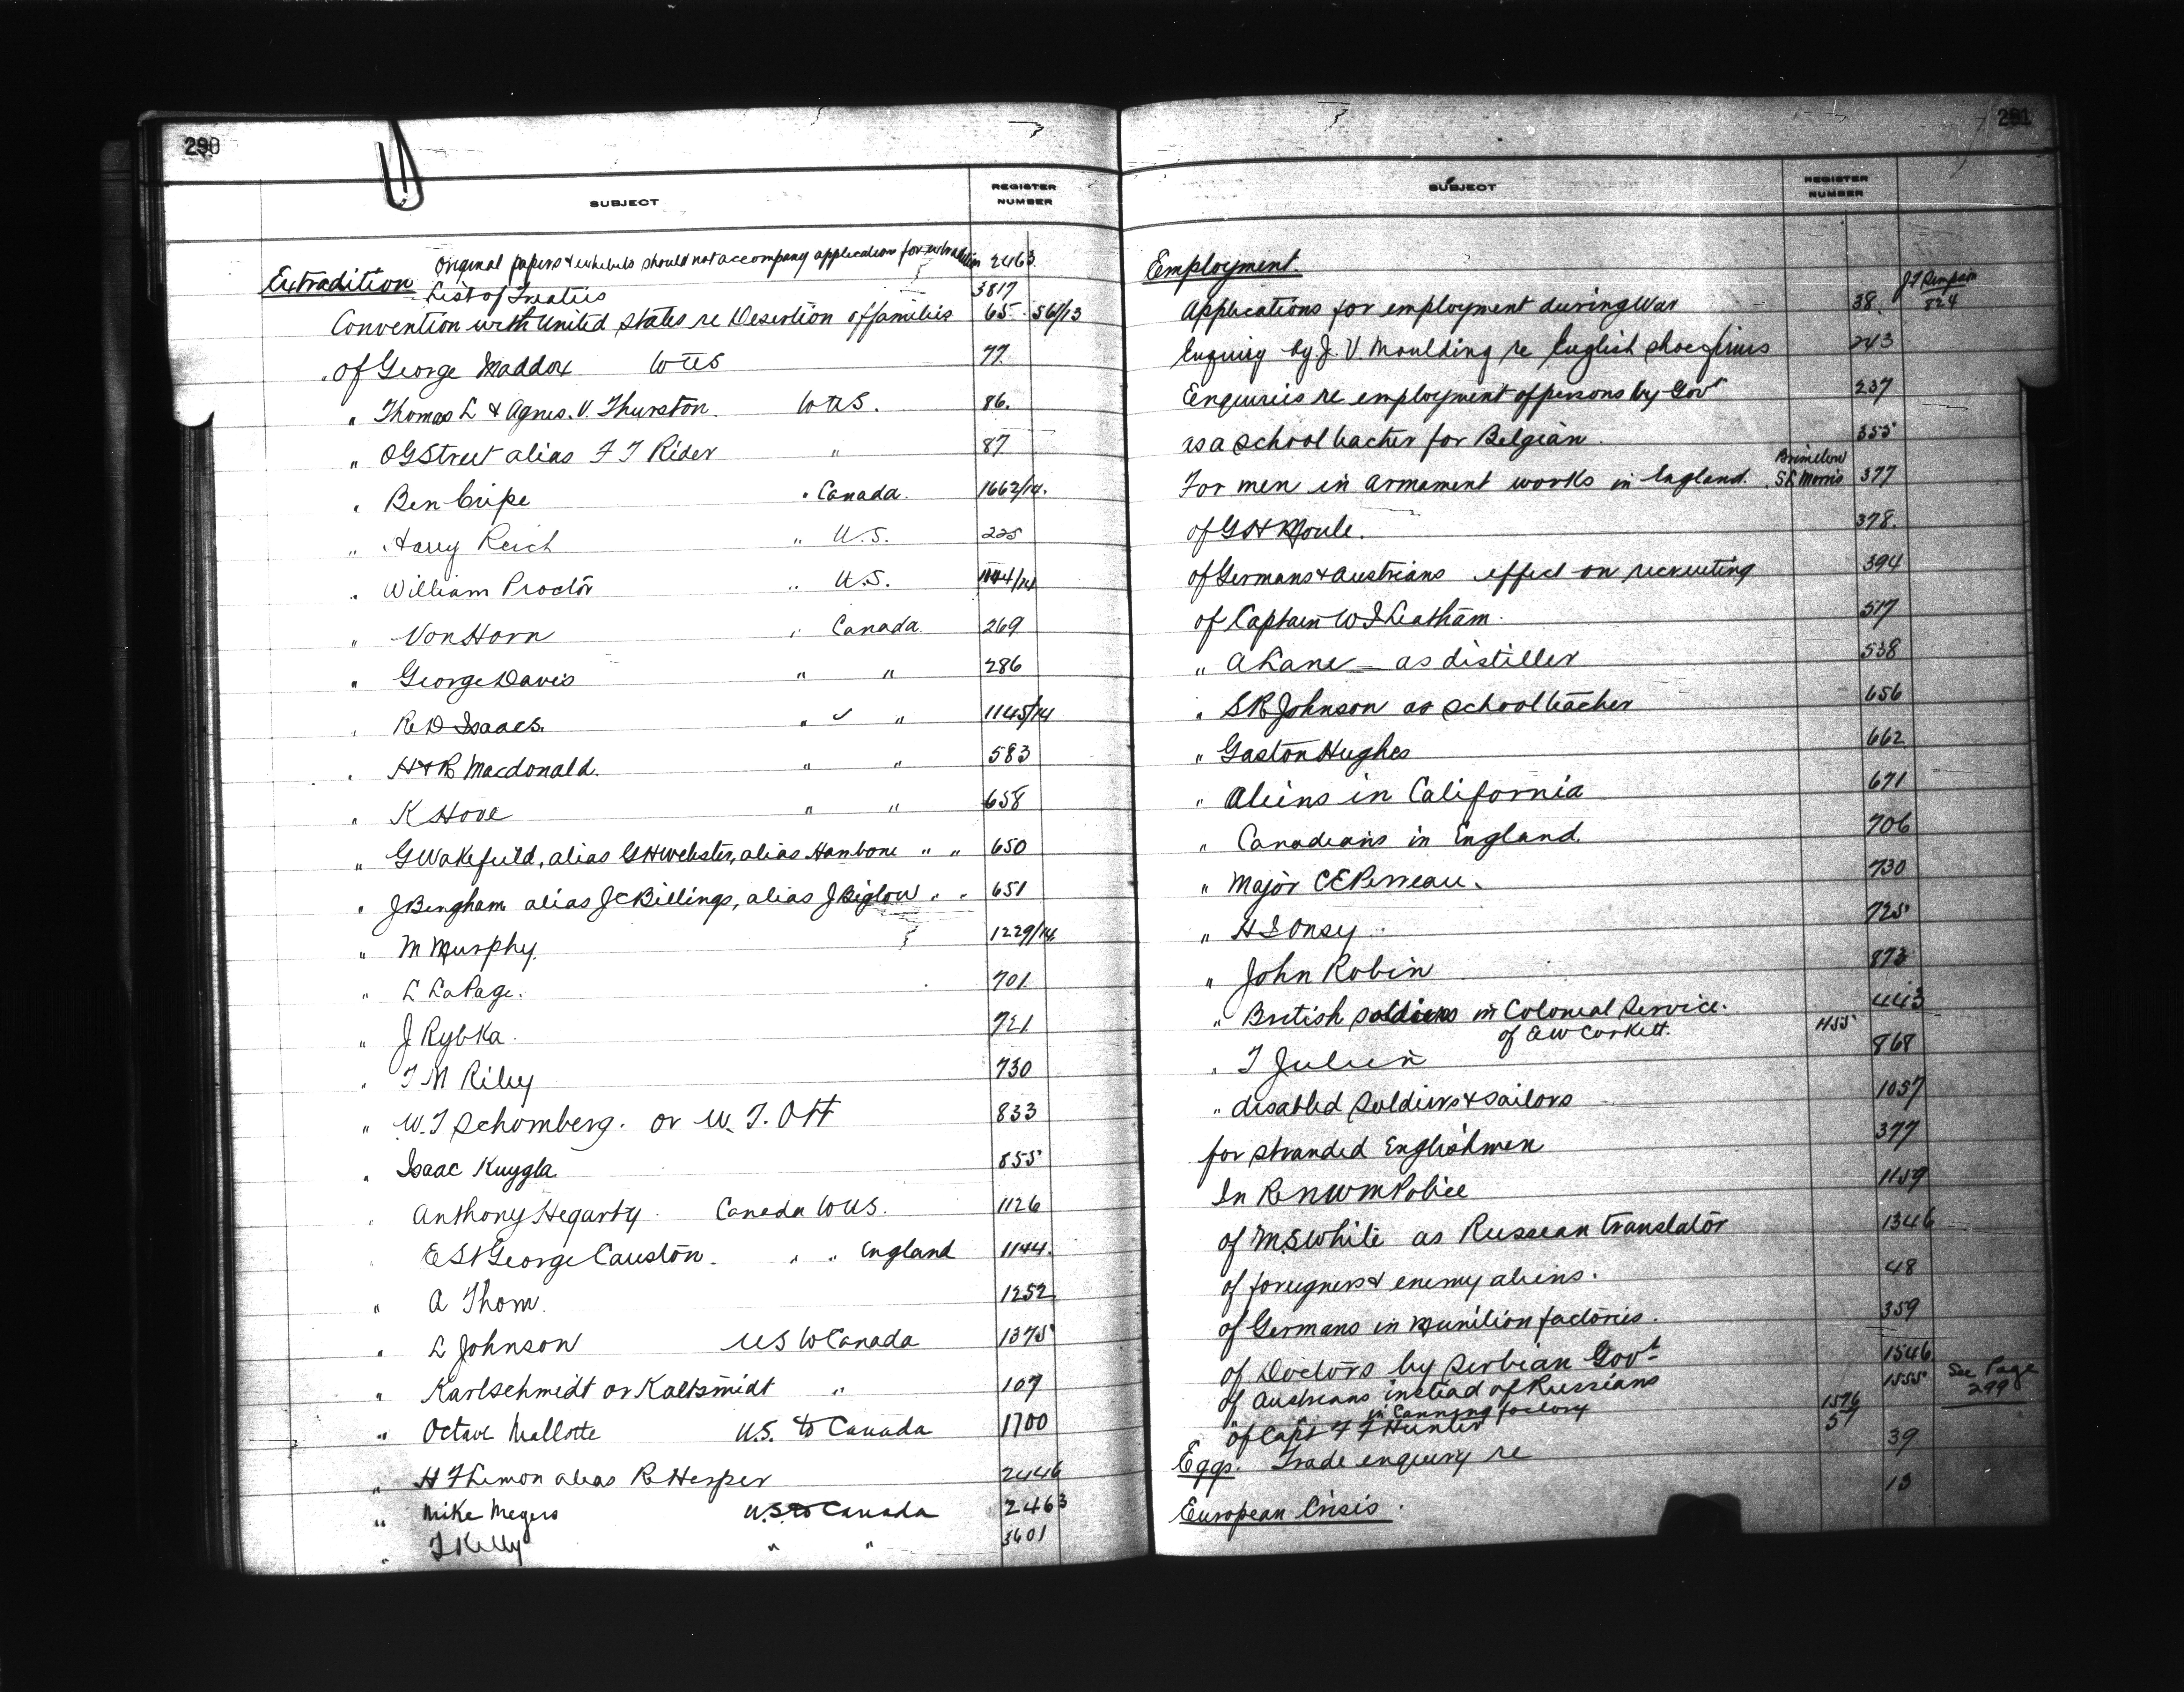 290
SUBJECT
REGISTER NUMBER
Original papers & exhibits should not accompany application for extradition 2463.
Extradition List of Treaties 3817
Convention with United States re Desertion of families 65. 56/13
of George Maddox to US 77.
" Thomas L & Agnes. V. Thurston. to U.S. 86.
" O G Street alias F T Rider " 87
" Ben Cripe " Canada. 1662/14.
" Harry Reich " U.S. 225
" William Proctor " U.S. /14
" Von Horn " Canada. 269
" George Davis " " 286
" R D Isaacs. " " 1145/14
" H & R Macdonald. " " 583
" K Hove " " 658
" G Wakefield, alias G H Webster, alias Hambone " " 650
" J Bingham alias J C Billings, alias J Biglow " " 651
" M Murphy. 1229/14
" L LaPage. 701
" J Rybka. 721
" T M Riley 730
" W. T Schomberg. or W. T. Ott 833
" Isaac Kuygla 855
" Anthony Hegarty. Canada to U.S. 1126
" E St George Causton. " " England 1144.
" A Thom. 1252
" L Johnson US to Canada 1375
" Karlschmidt or Kaltsmidt " 107
" Octave Mallotte U.S. to Canada 1700
" H F Limon alias R Hesper 2446
" Mike Megers U.S. to Canada 2463
" T Kelly " " 3601
291
SUBJECT
REGISTER NUMBER
Employment.
Applications for employment during War 38. J T Simpson 824
Enquiry by J. V. Moulding re English shoe firms 243
Enquiries re employment of persons by Govt 237
as a school teacher for Belgian. 355
For men in armament works in England. Brimelow S R Morris 377
of G H Moule. 378.
of Germans & Austrians effect on recruiting 394
of Captain W I Leatham. 517
" A Lane - as distiller 538
" S R Johnson as school teacher 656
" Gaston Hughes 662
" Aliens in California 671
" Canadians in England. 706
" Major C E Perreau. 730
" H I Onsy. 725
" John Robin 873
" British soldiers in Colonial Service. 443
of E W Corkett. 455
" T Julien 868
" disabled soldiers & sailors 1057
for stranded Englishmen 377
In R N W M Police 1159
of M S White as Russian translator 1346
of foreigners & enemy aliens. 48
of Germans in munition factories. 359
of Doctors by Serbian Govt 1546
of Austrians instead of Russians 1555 See Page 299
in Canning factory 1576
of Capt F F Hunter 57
Eggs. Trade enquiry re 39
European Crisis. 13